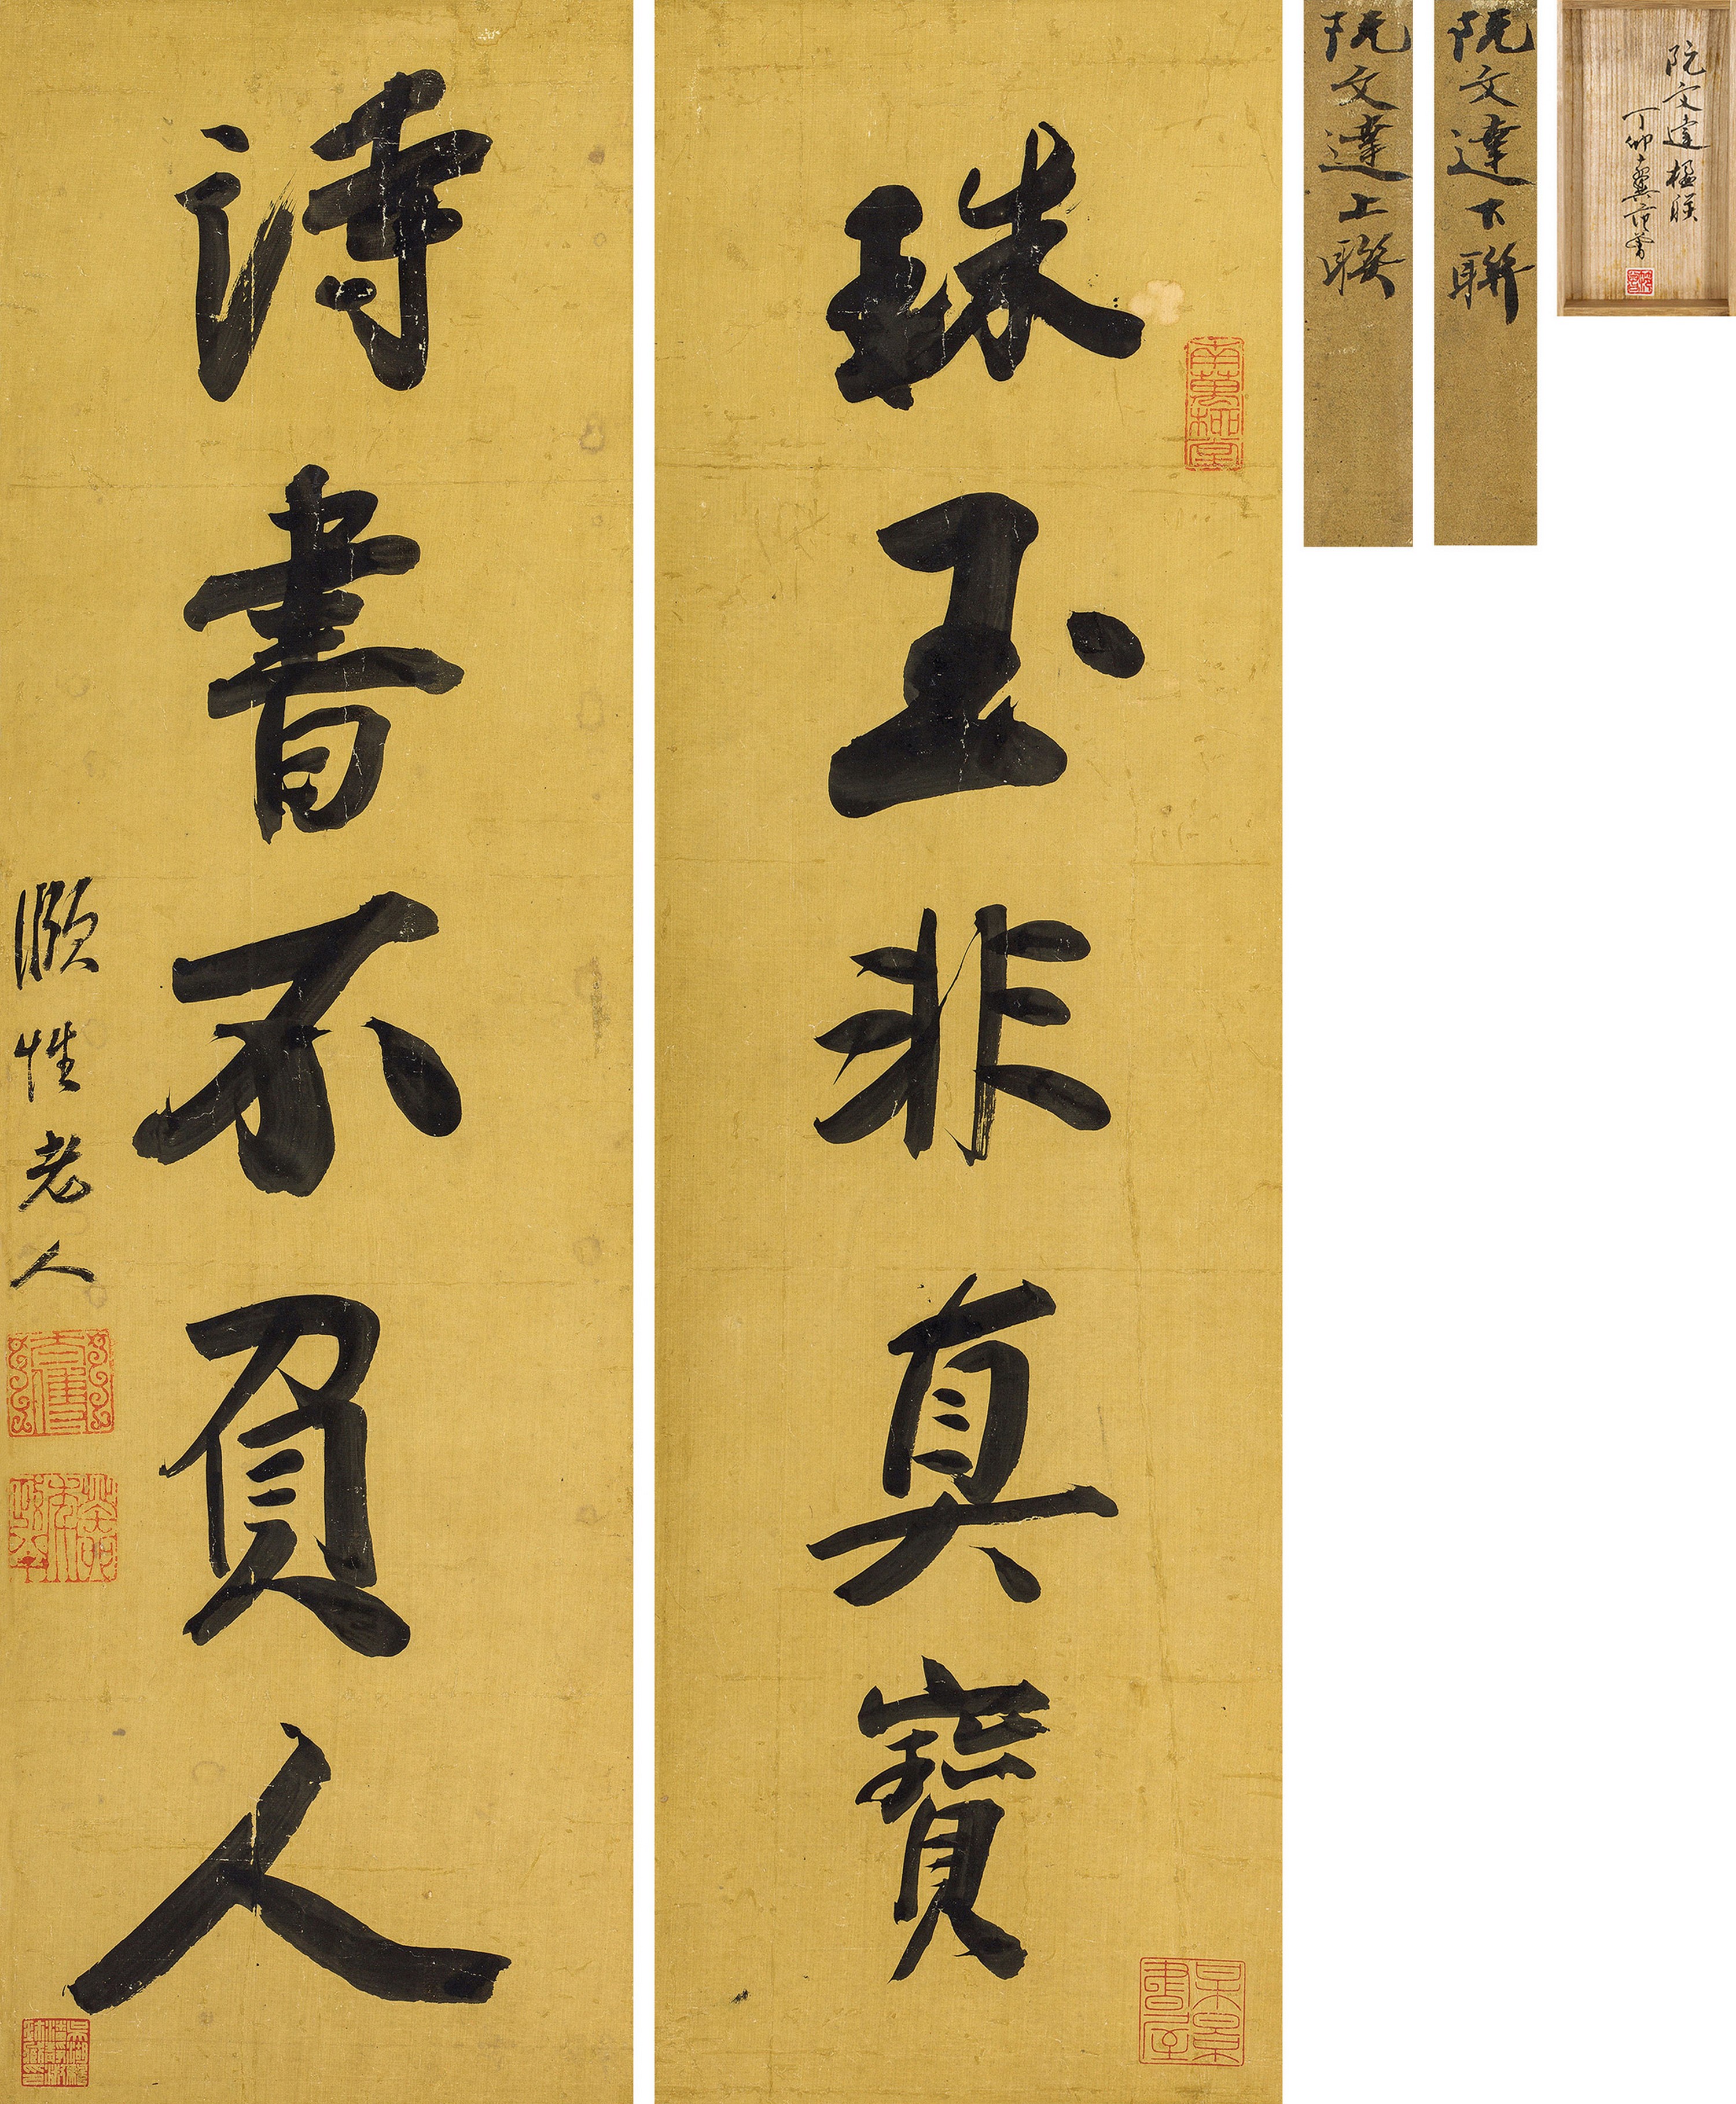 珠玉非真寶
詩書不負人
頤性老人
阮文達上聯
阮文達下聯
阮文達楹联
丁卯
南萬柳堂